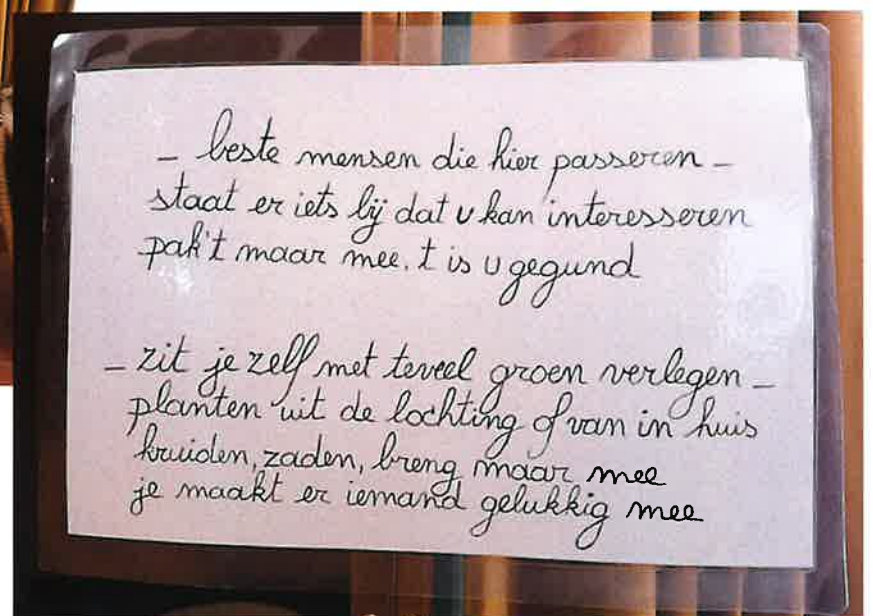 - beste mensen die hier passeren -
staat er iets bij dat u kan interesseren
pak't maar mee. t is u gegund
- zit je zelf met teveel groen verlegen -
planten uit de lochting of van in huis
kruiden, zaden, breng maar mee
je maakt er iemand gelukkig mee